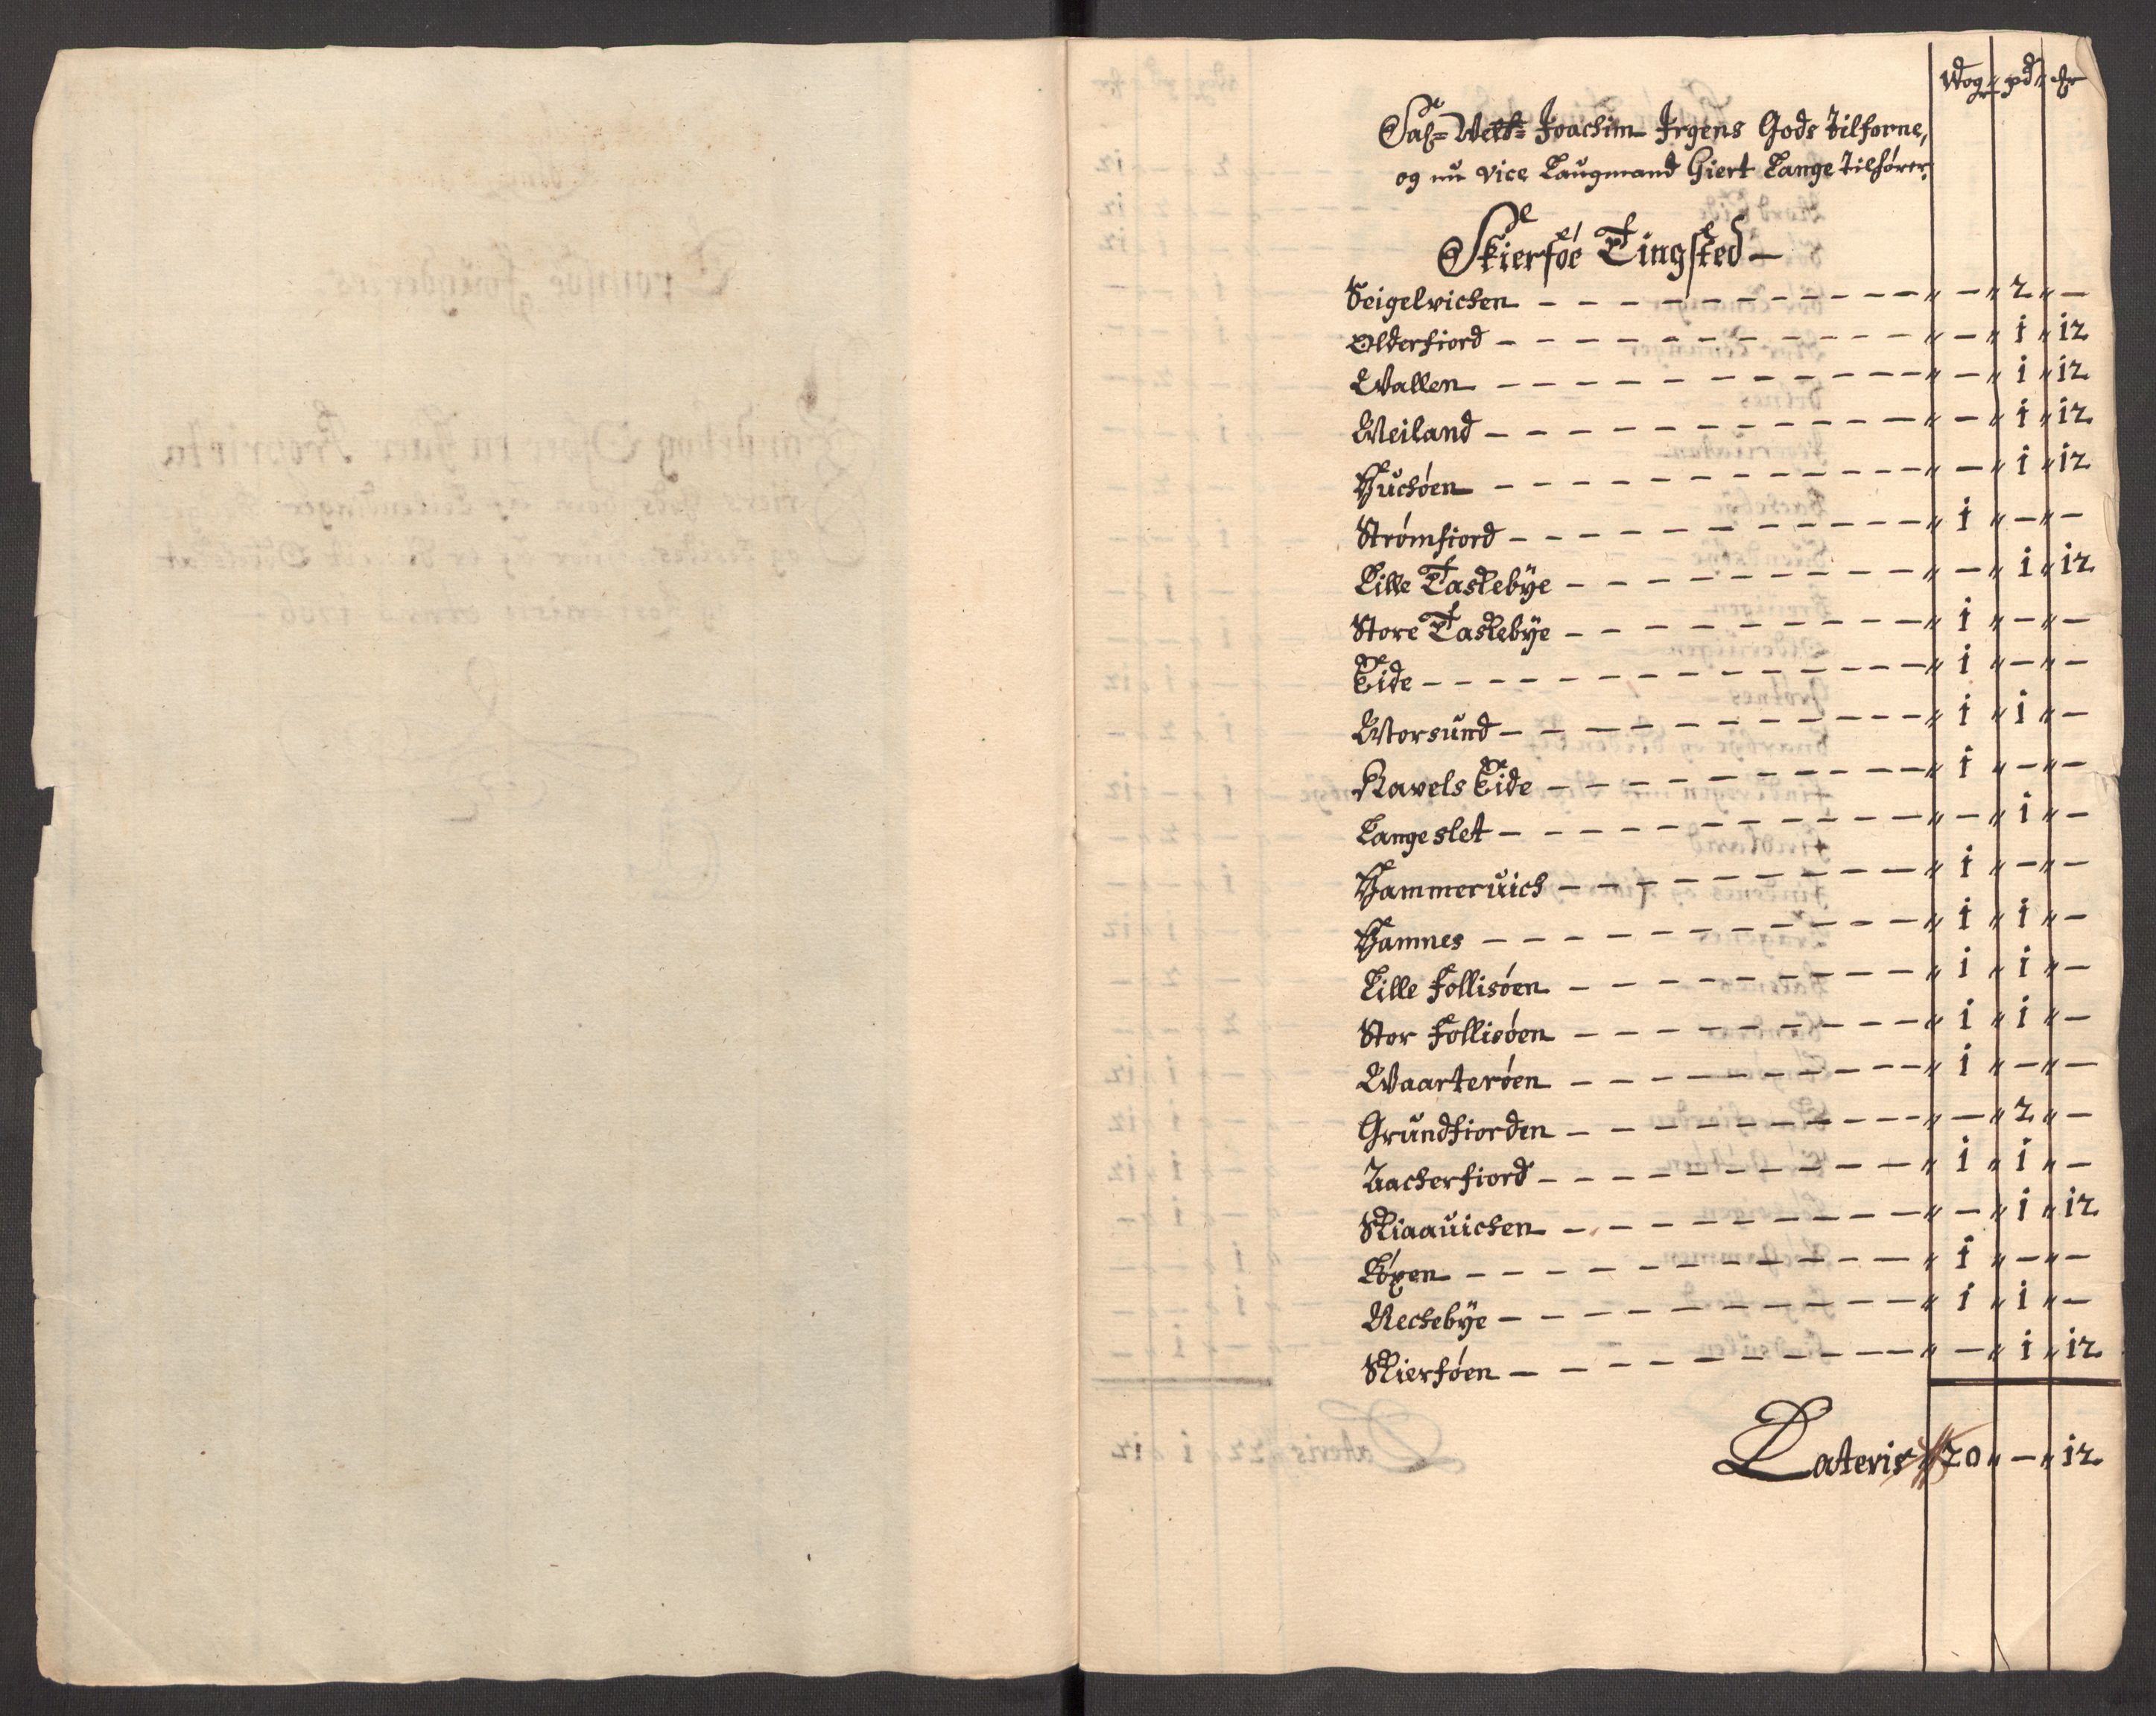 Wog " pd " 
Sal= Welb= Joachim Irgens Gods tilforne,
og nu Vice Laugmand Giert Lange tilhører.
Skierføe Tingsted —
Seigelvichen — " — " 2 " —
Olderfiord — " — " i " i2
Wallen — " — " i " i2
Meiland — " — " i " i2
Huchøen — " — " i " i2
Strømfiord — " i " — " —
Lille Taskebÿe — " — " i " i2
Store Taskebÿe — " i " — " —
Eide — " i " — " —
Morsund — " i " i " —
Ravels Eide — " i " — " —
Langeslet — " — " i " —
Hammeruich — " i " — " —
Hamnes — " i " i " —
Lille Follisøen — " i " i " —
Stor Follisøen — " i " i " —
Waarterøen — " i " — " —
Grundfiorden — " — " 2 " —
Uacherfiord — " i " i " —
Skiaauichen — " — " i " i2
Løxen — " i " — " —
Rechebÿe — " i " i " —
Skierføen — " — " i " i2
Lateris 20 " — " i2